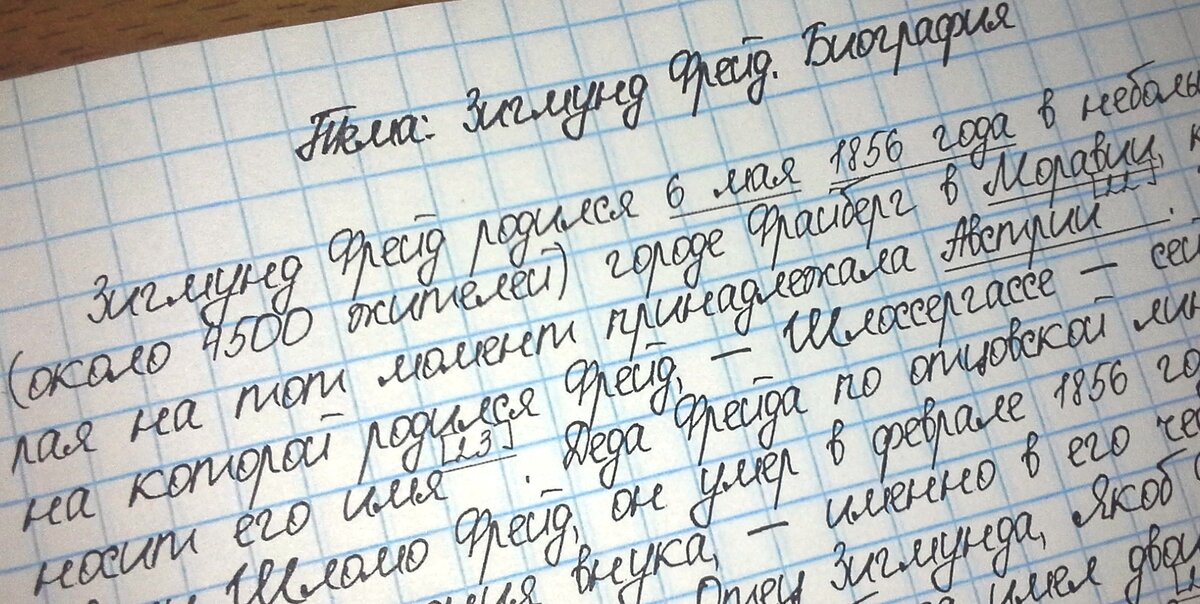 Тема: Зигмунд Фрейд. Биография
Зигмунд Фрейд родился 6 мая 1856 года в неболь
(около 4500 жителей) городе Фрайберг в Моравии,
рая на тот момент принадлежала Австрии [22].
на которой родился Фрейд, – Шлоссергассе – сей
носит его имя [23]. Деда Фрейда по отцовской лин
Шломо Фрейд, он умер в феврале 1856 го
внука, – именно в его че
Отец Зигмунда, Якоб
имел двои